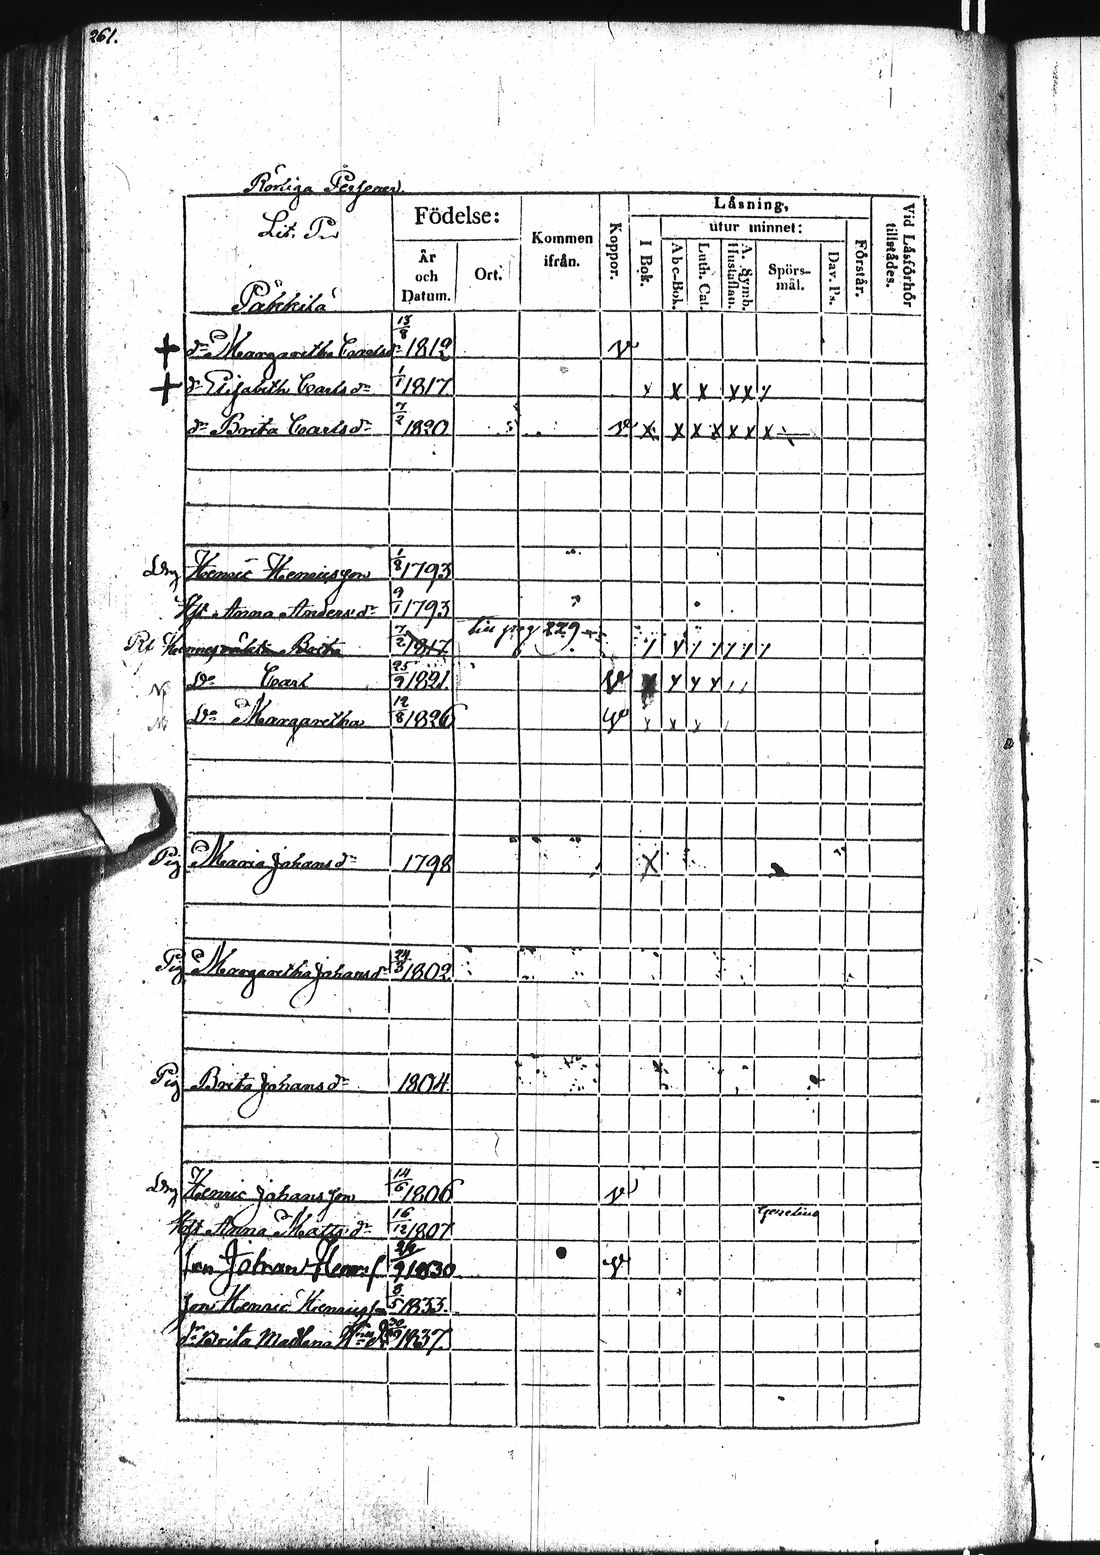 261.
Rörliga Personer.
Lit. P.
Påkkilä
Födelse:
År och Datum.
Ort.
Kommen ifrån.
Koppor.
Låsning,
I Bok.
utur minnet:
Abc-Bok.
Luth. Cat.
A. Symb. Hustaflan.
Spörs-mål.
Dav. Ps.
Förstår.
Vid Låsförhör tillstådes.
+ dr Margaretha Carlsdr 13/8 1812 v
+ dr Elisabeth Carlsdr 1/1 1817 x x x x x x
dr Brita Carlsdr 7/2 1820 v x x x x x x x
Henric Henricsson 1/8 1793
Hst Anna Andersdr 9/1 1793
Brita 7/2 1817 pag 229
Do Carl 25/9 1821. v
Do Margaretha 12/8 1826 v x x x
Pig Maria Johansdr 1798 X
Pig Margaretha Johansdr 24/3 1802
Pig Brita Johansdr 1804
Henric Johansson 14/6 1806 v
Hst Anna Mattsdr 16/12 1807
son Johan Henrics 1830 v
son Henric Henricsson 3/5 1833
dr Brita Madlena 1837